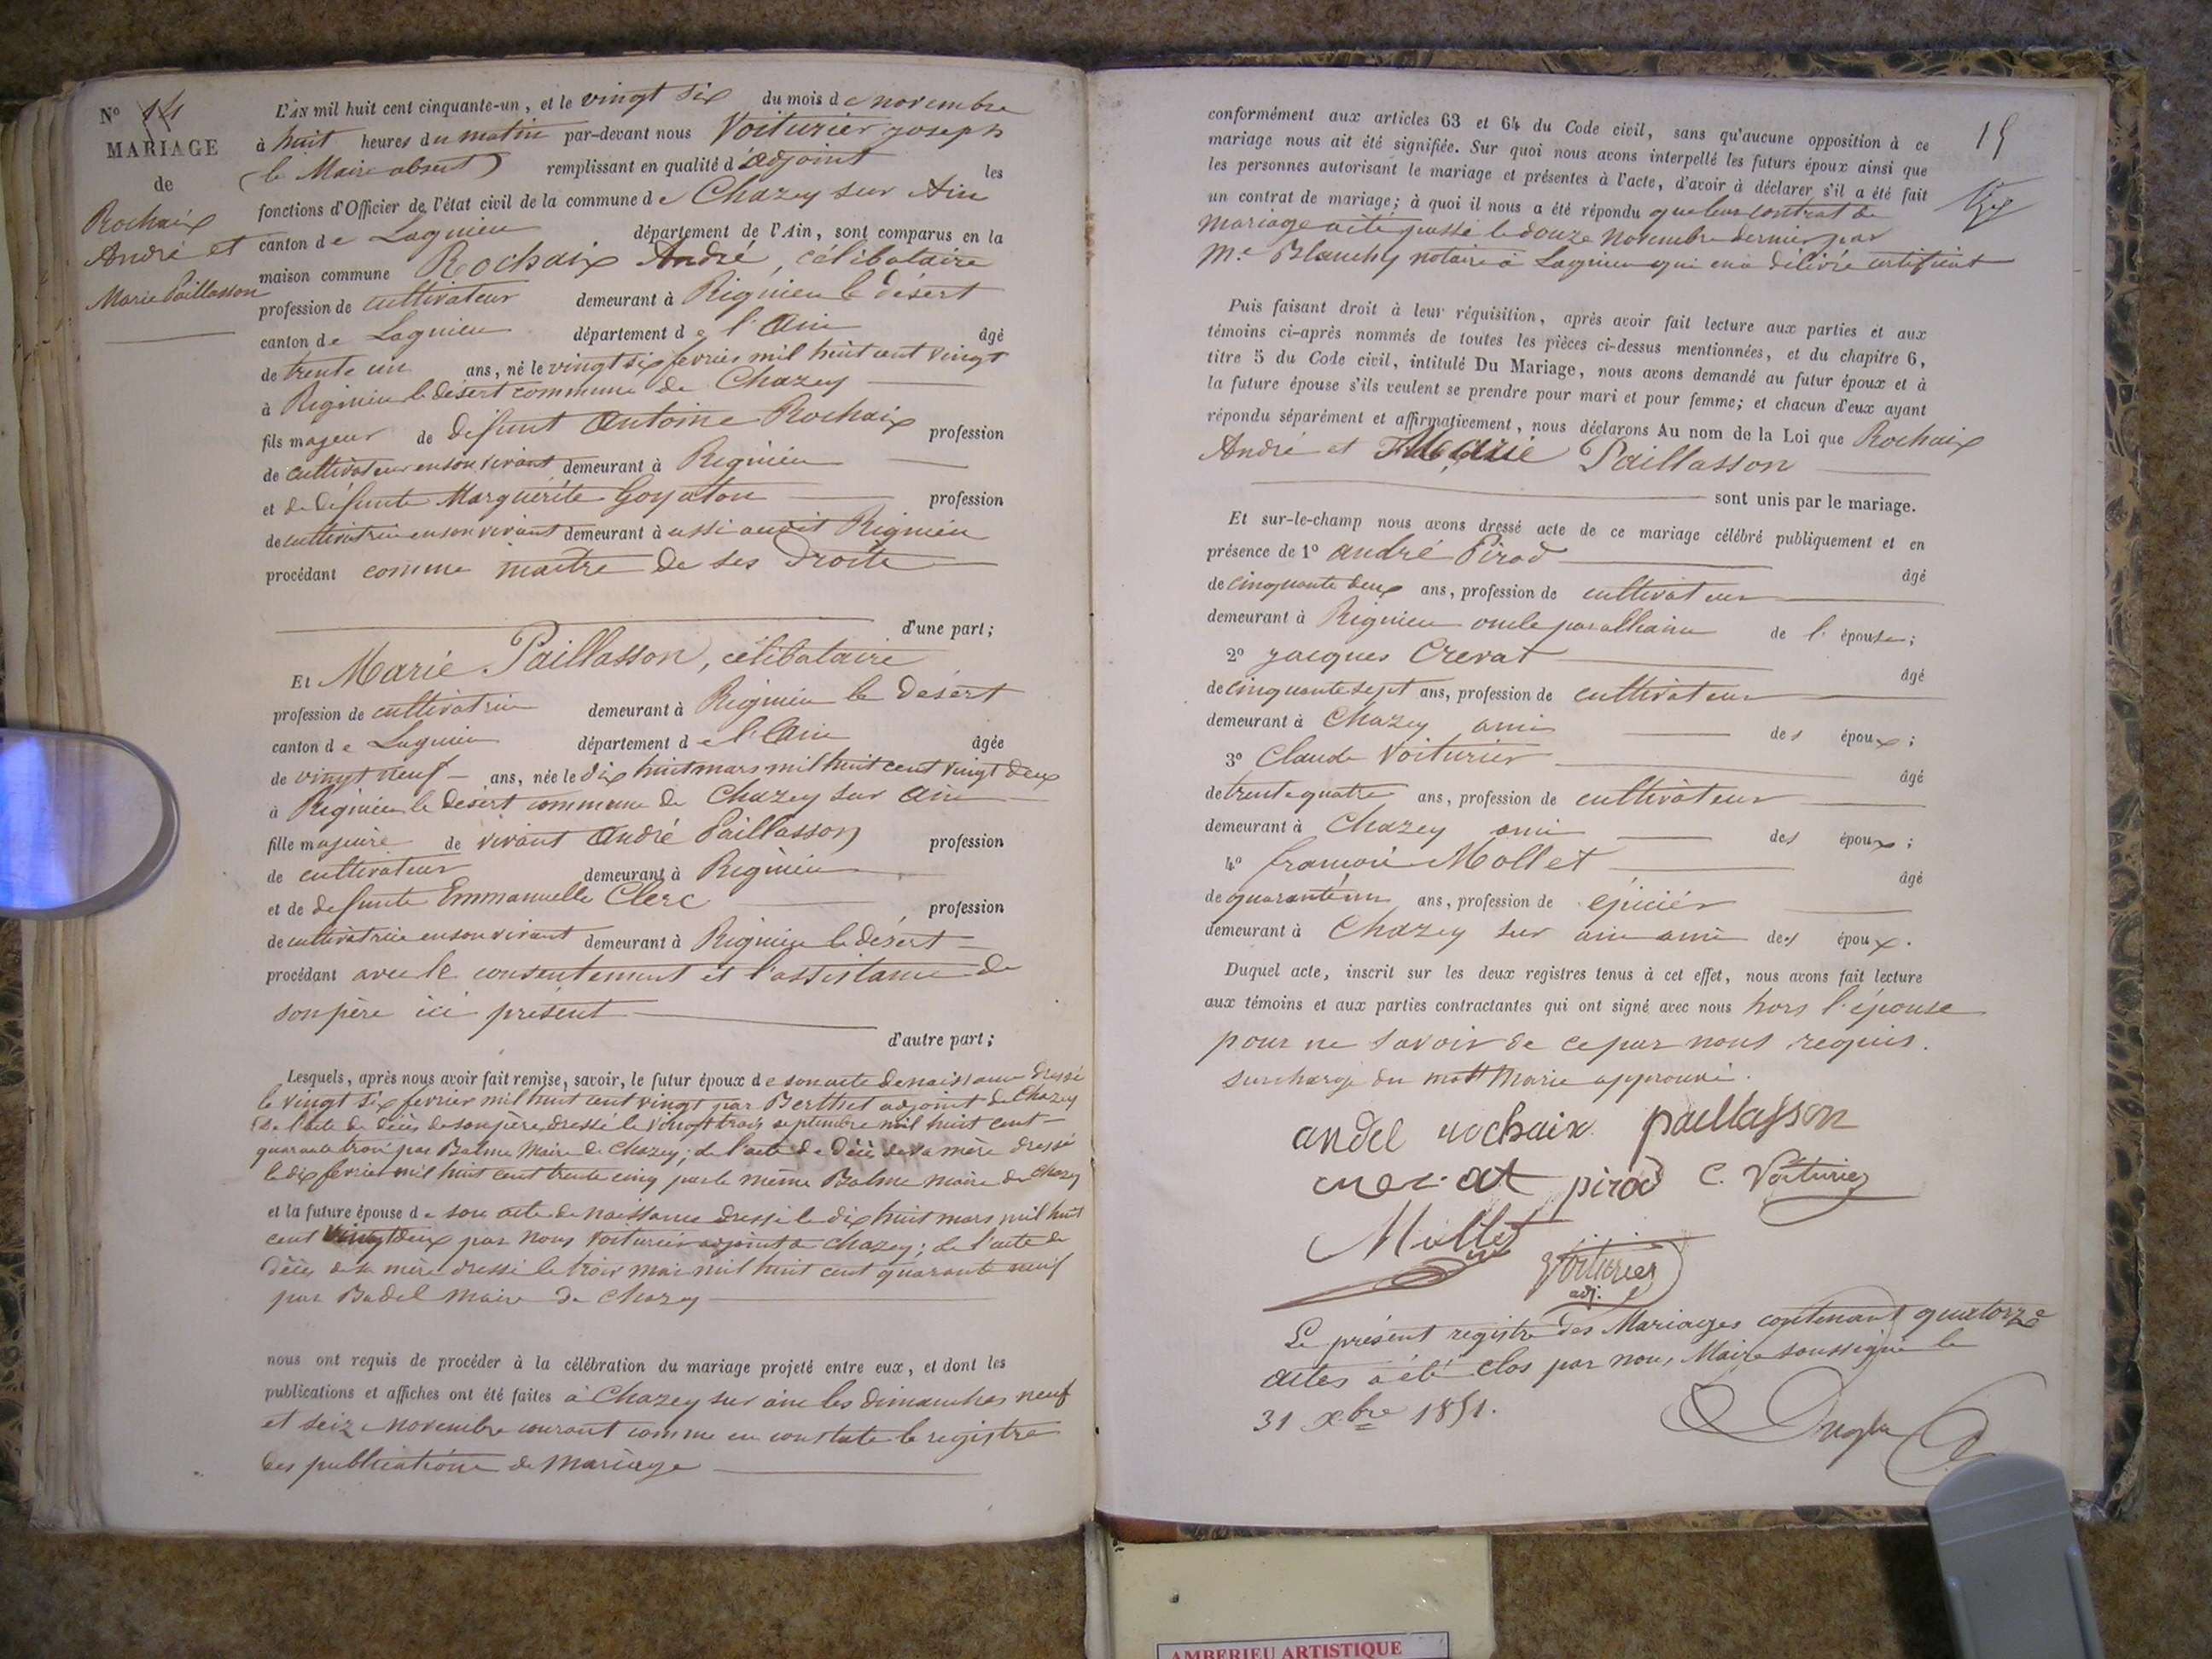 N° 14
MARIAGE
de
Rochaix
André et
Marie Paillasson
L'an mil huit cent cinquante-un, et le vingt six du mois de novembre
à huit heures du matin par-devant nous Voiturier joseph
(le Maire absent) remplissant en qualité d'adjoint les
fonctions d'Officier de l'état civil de la commune de Chazey sur Ain
canton de Lagnieu département de l'Ain, sont comparus en la
maison commune Rochaix André, célibataire
profession de cultivateur demeurant à Rignieu le désert
canton de Lagnieu département de l'Ain âgé
de trente un ans, né le vingt six fevrier mil huit cent vingt
à Rignieu le désert commune de Chazey
fils majeur de defunt Antoine Rochaix profession
de cultivateur en son vivant demeurant à Rignieu
et de defunte Marguérite Goyaton profession
de cultivatrice en son vivant demeurant à ussi audit Rignieu
procédant comme maitre de ses droits
d'une part;
Et Marie Paillasson, célibataire
profession de cultivatrice demeurant à Rignieu le désert
canton de Lagnieu département de l'Ain âgée
de vingt neuf ans, née le dix huit mars mil huit cent vingt deux
à Rignieu le désert commune de Chazey sur Ain
fille majeure de vivant André Paillasson profession
de cultivateur demeurant à Rignieu
et de defunte Emmanuelle Clerc profession
de cultivatrice en son vivant demeurant à Rignieu le désert
procédant avec le consentement et l'assistance de
son père ici présent
d'autre part;
Lesquels, après nous avoir fait remise, savoir, le futur époux de son acte de naissance dressé
le vingt six fevrier mil huit cent vingt par Berthet adjoint de Chazey
de l'acte de décès de son père dressé le vingt trois septembre mil huit cent
quarante trois par Balme Maire de Chazey; de l'acte de décès de sa mère dressé
le dix fevrier mil huit cent trente cinq par le même Balme maire de Chazey
et la future épouse de son acte de naissance dressé le dix huit mars mil huit
cent vingt deux par nous Voiturier adjoint de Chazey; de l'acte de
décès de sa mère dressé le trois mai mil huit cent quarante neuf
par Badel maire de Chazey
nous ont requis de procéder à la célébration du mariage projeté entre eux, et dont les
publications et affiches ont été faites à Chazey sur ain les dimanches neuf
et seize novembre courant comme en constate le registre
des publications de Mariage
15
conformément aux articles 63 et 64 du Code civil, sans qu'aucune opposition à ce
mariage nous ait été signifiée. Sur quoi nous avons interpellé les futurs époux ainsi que
les personnes autorisant le mariage et présentes à l'acte, d'avoir à déclarer s'il a été fait
un contrat de mariage; à quoi il nous a été répondu que leur contrat de
Mariage a été passé le douze Novembre dernier par
Me Blanchy notaire à Lagnieu qui en a délivré certificat
Puis faisant droit à leur réquisition, après avoir fait lecture aux parties et aux
témoins ci-après nommés de toutes les pièces ci-dessus mentionnées, et du chapitre 6,
titre 5 du Code civil, intitulé Du Mariage, nous avons demandé au futur époux et à
la future épouse s'ils veulent se prendre pour mari et pour femme; et chacun d'eux ayant
répondu séparément et affirmativement, nous déclarons Au nom de la Loi que Rochaix
André et Marie Paillasson
sont unis par le mariage.
Et sur-le-champ nous avons dressé acte de ce mariage célébré publiquement et en
présence de 1° andré Pirod âgé
de cinquante deux ans, profession de cultivateur
demeurant à Rignieu oncle par alliance de l'épouse;
2° jacques Crevat âgé
de cinquante sept ans, profession de cultivateur
demeurant à Chazey ami des époux;
3° Claude Voiturier âgé
de trente quatre ans, profession de cultivateur
demeurant à Chazey ami des époux;
4° francois Mollet âgé
de quarante un ans, profession de épicier
demeurant à Chazey sur ain ami des époux.
Duquel acte, inscrit sur les deux registres tenus à cet effet, nous avons fait lecture
aux témoins et aux parties contractantes qui ont signé avec nous hors l'épouse
pour ne savoir de ce par nous requis.
surcharge du mott Marie approuvé.
andel rochaix paillasson
crevat pirod C. Voiturier
Mollet
Voiturier
adj.
Le présent registre des Mariages contenant quatorze
actes a été clos par nous, Maire soussigné le
31 Xbre 1851.
AMBERIEU ARTISTIQUE